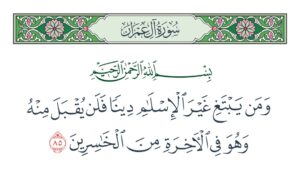 سُورَةُ آلِ عِمْرَانَ
بِسْمِ اللَّهِ الرَّحْمَٰنِ الرَّحِيمِ
وَمَن يَبْتَغِ غَيْرَ الْإِسْلَامِ دِينًا فَلَن يُقْبَلَ مِنْهُ
وَهُوَ فِي الْآخِرَةِ مِنَ الْخَاسِرِينَ ٨٥